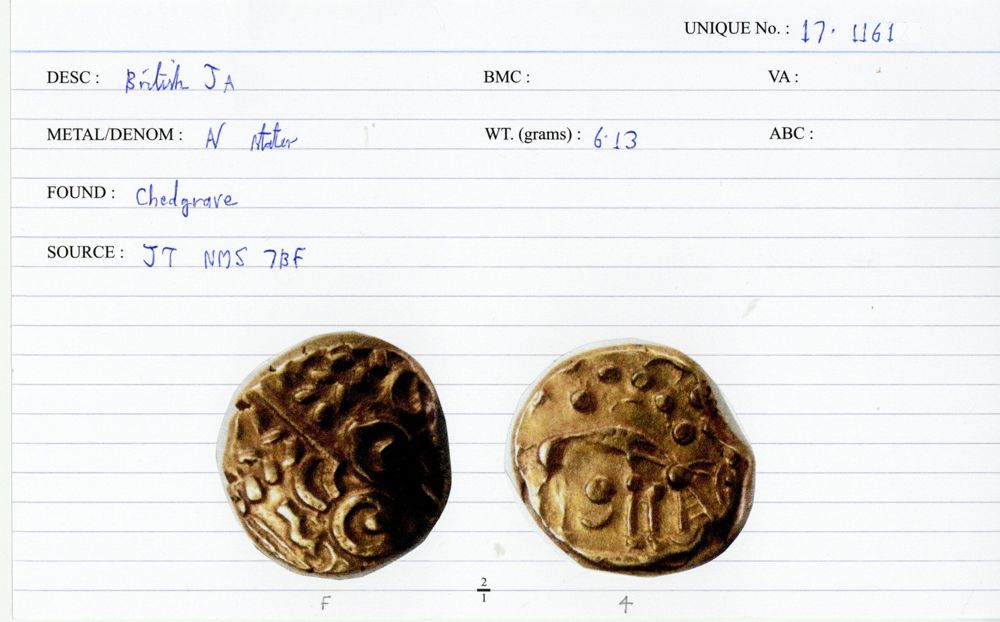 UNIQUE No. : 17. 1161
DESC : British JA BMC : VA :
METAL/DENOM : N stater WT. (grams) : 6.13 ABC :
FOUND : Chedgrave
SOURCE : JT NMS 7BF
2
1
F 4